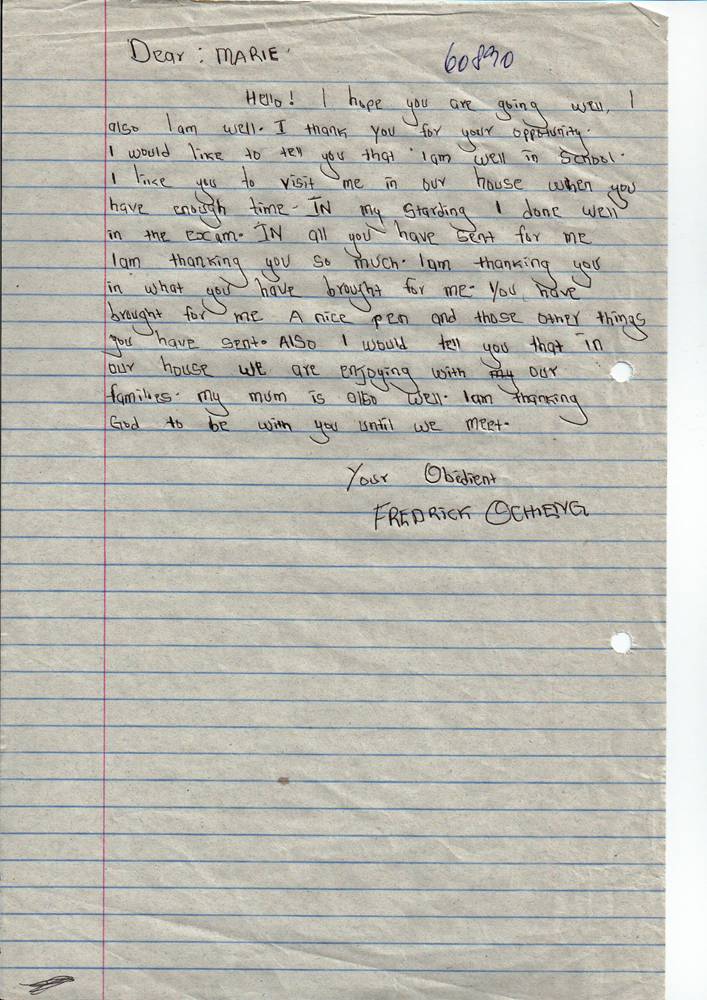 Dear : MARIE. 60890
Hello! I hope you are going well, I
also I am well. I thank you for your opportunity.
I would like to tell you that I am well in school.
I like you to visit me in our house when you
have enough time. IN my starding I done well
in the exam. IN all you have sent for me
I am thanking you so much. I am thanking you
in what you have brought for me. You have
brought for me A nice pen and those other things
you have sent. Also I would tell you that in
our house we are enjoying with my our
families. my mum is also well. I am thanking
God to be with you until we meet.
Your Obedient
FREDRICK OCHIENG